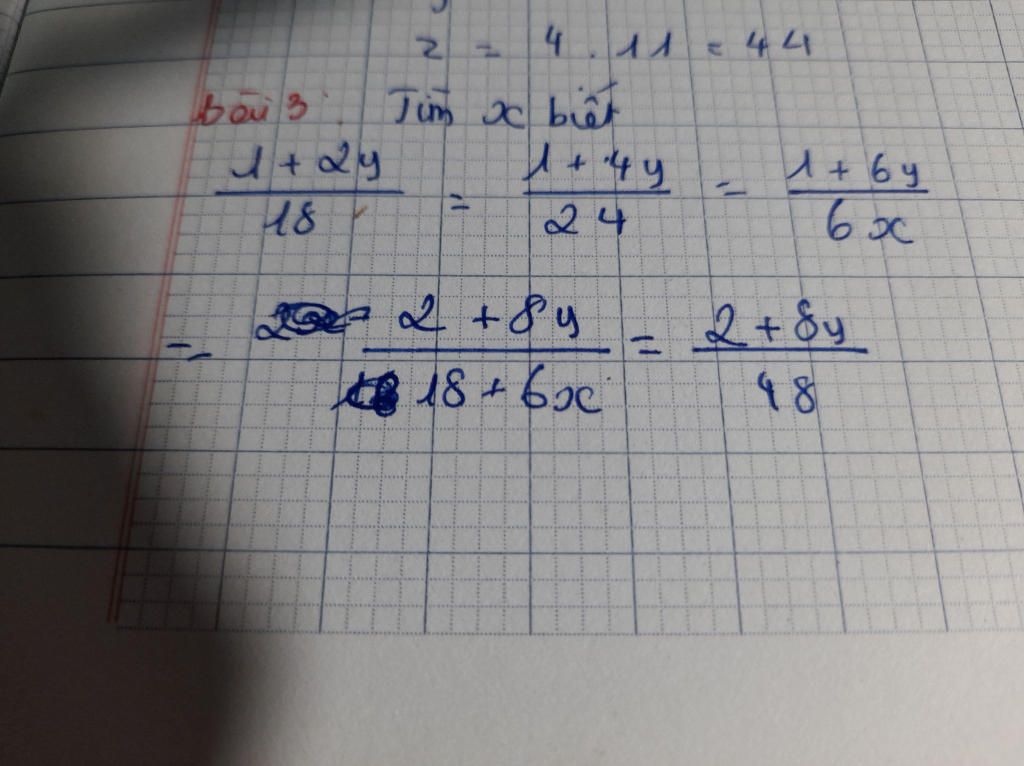 z = 4 . 11 = 44
bài 3 : Tìm x biết
1 + 2y / 18 = 1 + 4y / 24 = 1 + 6y / 6x
= 2 + 8y / 18 + 6x = 2 + 8y / 48